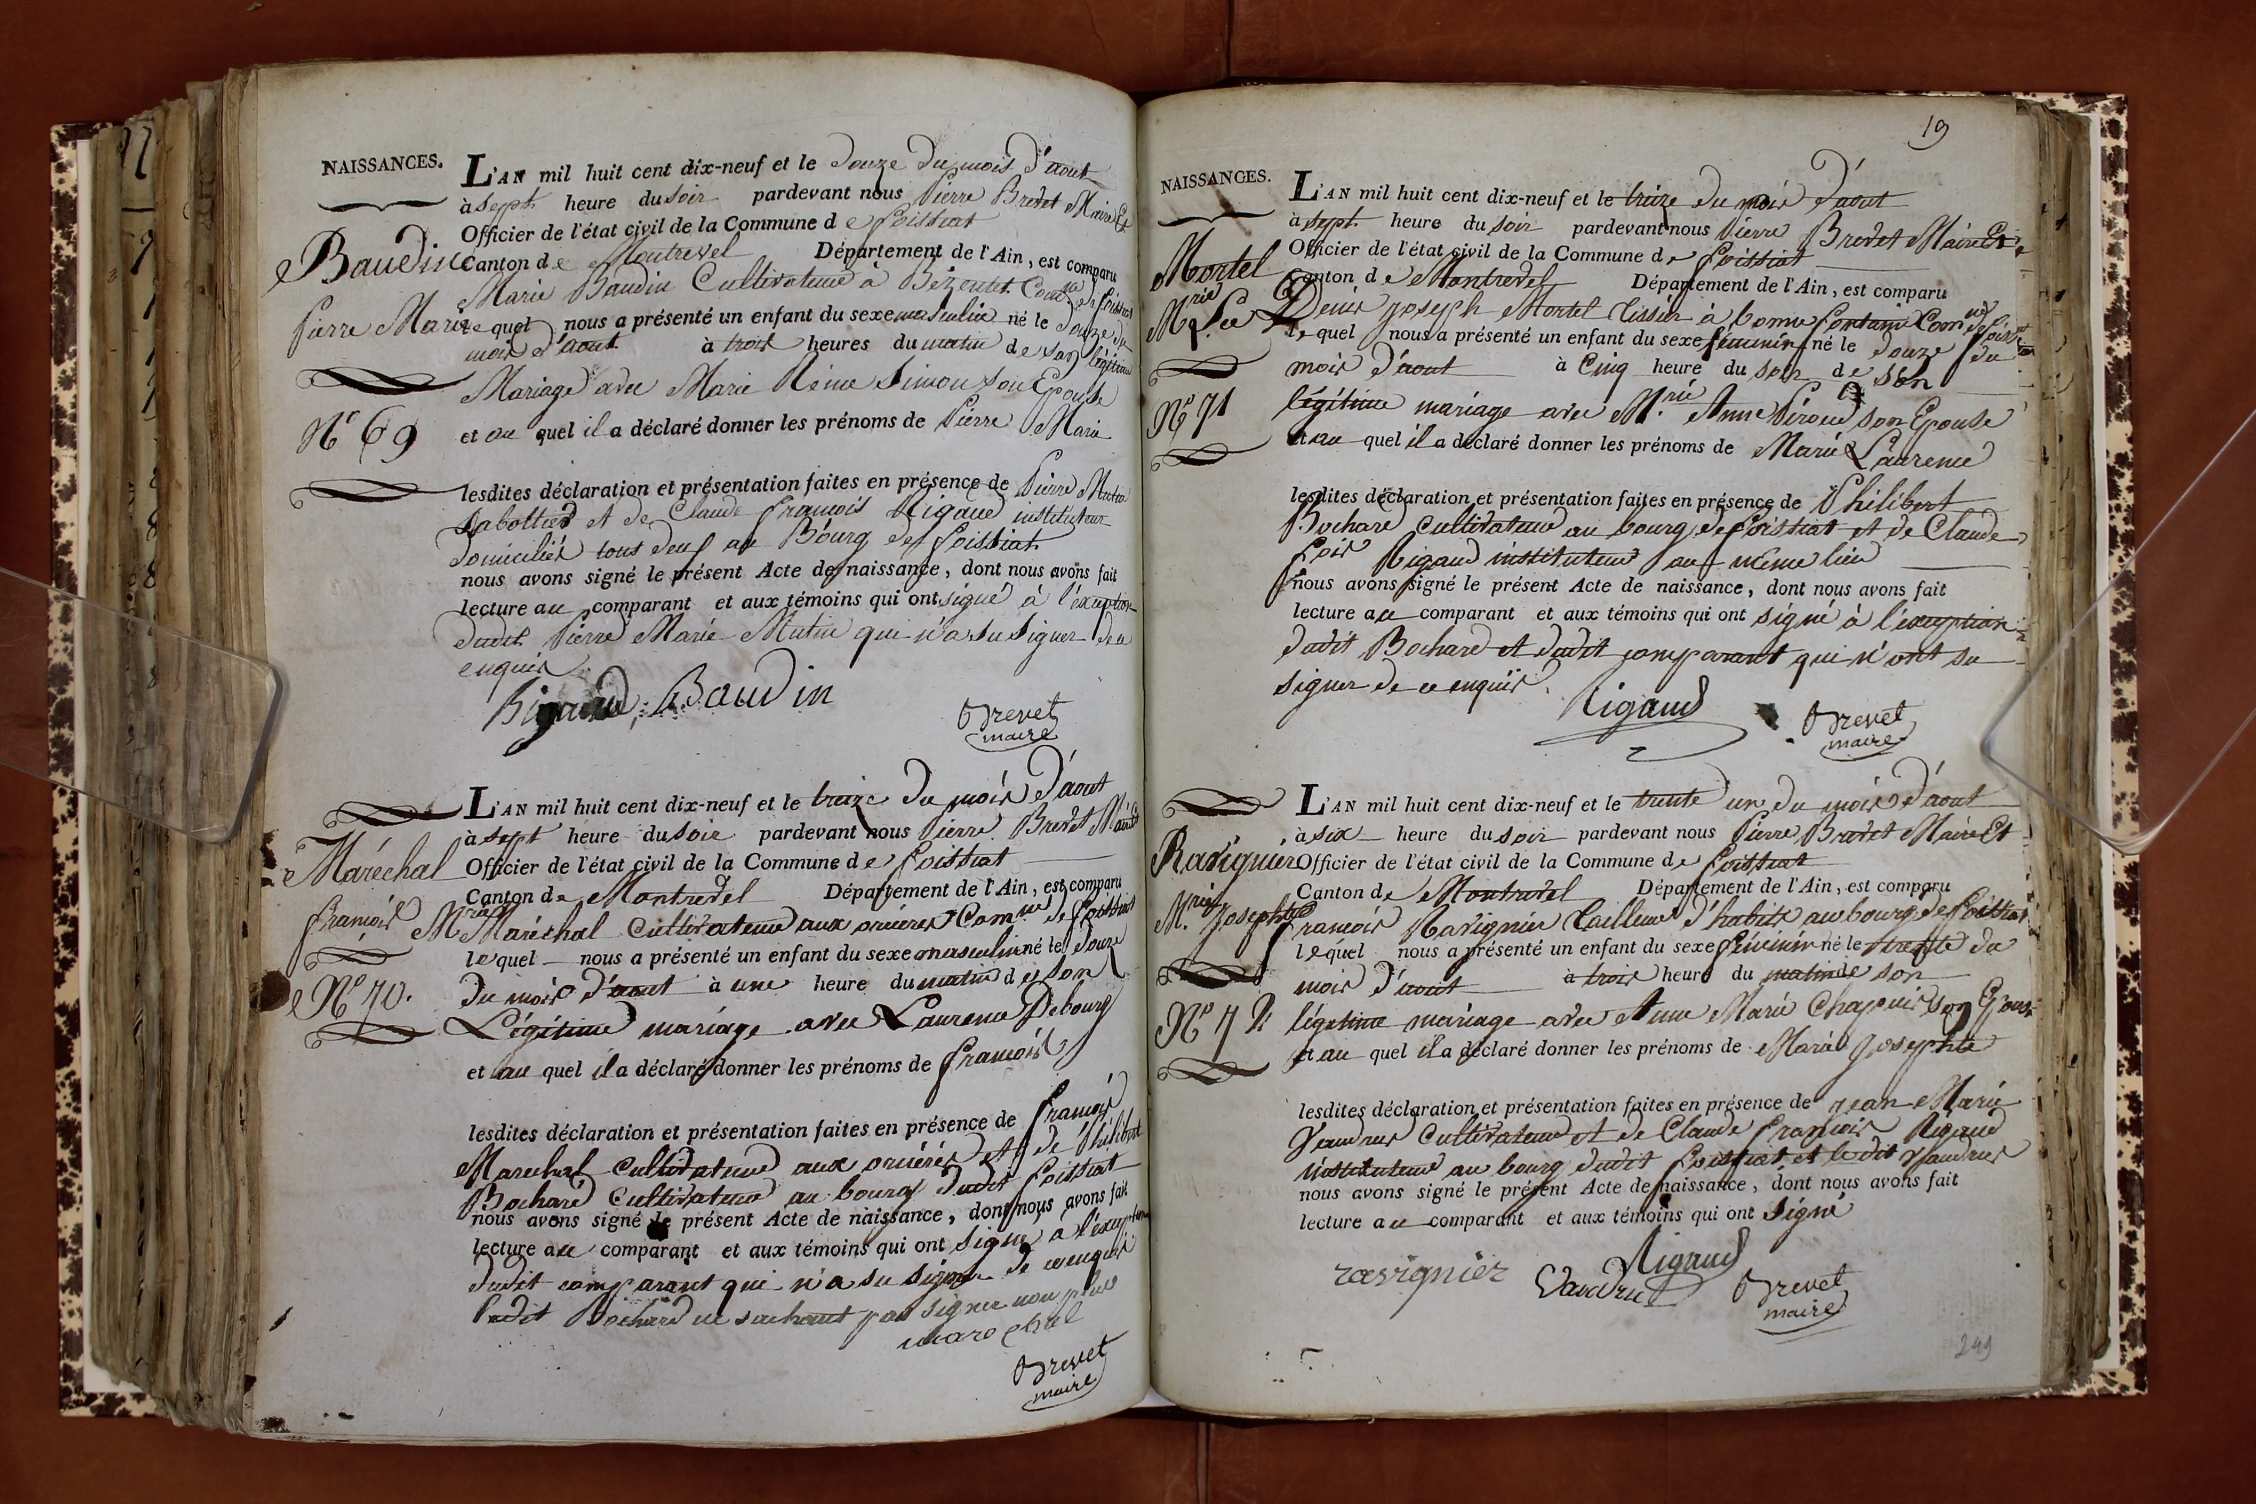 NAISSANCES.
Baudin
Pierre Marie
N° 69
L'AN mil huit cent dix-neuf et le douze du mois d'aout
à sept heure du soir pardevant nous Pierre Brevet Maire Et
Officier de l'état civil de la Commune de Foissiat
Canton de Montrevel Département de l'Ain, est comparu
Marie Baudin Cultivateur à Bézentet Comne de Foissiat
le quel nous a présenté un enfant du sexe masculin né le douze du
mois d'aout à trois heures du matin de son légitime
Mariage avec Marie Reine Simon son Epouse
et au quel il a déclaré donner les prénoms de Pierre Marie
lesdites déclaration et présentation faites en présence de Pierre
Sabottier et de Claude françois Rigaud instituteur
domiciliés tous deux au Bourg de Foissiat
nous avons signé le présent Acte de naissance, dont nous avons fait
lecture au comparant et aux témoins qui ont signé à l'exception
dudit Pierre Marie Mutin qui n'a su signer de ce
enquis
Rigaud Baudin
Brevet
maire
Maréchal
françois
N° 70.
L'AN mil huit cent dix-neuf et le treize du mois d'aout
à sept heure du soir pardevant nous Pierre Brevet Maire
Officier de l'état civil de la Commune de Foissiat
Canton de Montrevel Département de l'Ain, est comparu
Mrie Maréchal Cultivateur aux orcières Comne de Foissiat
le quel nous a présenté un enfant du sexe masculin né le douze
du mois d'aout à une heure du matin de son
Légitime mariage avec Laurence Debourg
et au quel il a déclaré donner les prénoms de françois
lesdites déclaration et présentation faites en présence de françois
Marechal Cultivateur aux orcières Et de Philibert
Bochard Cultivateur au bourg dudit Foissiat
nous avons signé le présent Acte de naissance, dont nous avons fait
lecture au comparant et aux témoins qui ont signé à l'exception
dudit comparant qui n'a su signer de ce enquis
Ledit Bochard ne sachant pas signer non plus
marechal
Brevet
maire
19
NAISSANCES.
Mortel
Mrie Lce
N° 71
L'AN mil huit cent dix-neuf et le treize du mois d'aout
à sept heure du soir pardevant nous Pierre Brevet Maire Et
Officier de l'état civil de la Commune de Foissiat
Canton de Montrevel Département de l'Ain, est comparu
Denis joseph Mortel Tissier à bonne fontaine Comne de Foissiat
le quel nous a présenté un enfant du sexe féminin né le douze du
mois d'aout à Cinq heure du soir de son
légitime mariage avec Mrie Anne Piroud son Epouse
et au quel il a déclaré donner les prénoms de Marie Laurence
lesdites déclaration et présentation faites en présence de Philibert
Bochard Cultivateur au bourg de Foissiat et de Claude
fçois Rigaud instituteur au même lieu
nous avons signé le présent Acte de naissance, dont nous avons fait
lecture au comparant et aux témoins qui ont signé à l'exception
dudit Bochard et dudit comparant qui n'ont su
signer de ce enquis.
Rigaud
Brevet
maire
Ravignier
Mrie Josephte
N° 72
L'AN mil huit cent dix-neuf et le trente un du mois d'aout
à six heure du soir pardevant nous Pierre Brevet Maire Et
Officier de l'état civil de la Commune de Foissiat
Canton de Montrevel Département de l'Ain, est comparu
françois Ravignier Tailleur d'habits au bourg de Foissiat
le quel nous a présenté un enfant du sexe féminin né le trente du
mois d'aout à trois heure du matin de son
légitime mariage avec Anne Marie Chapuis son Epouse
et au quel il a déclaré donner les prénoms de Marie Josephte
lesdites déclaration et présentation faites en présence de jean Marie
Vaudrus Cultivateur et de Claude françois Rigaud
instituteur au bourg dudit Foissiat et ledit Vaudrus
nous avons signé le présent Acte de naissance, dont nous avons fait
lecture au comparant et aux témoins qui ont signé
ravignier Vaudrus Rigaud
Brevet
maire
249